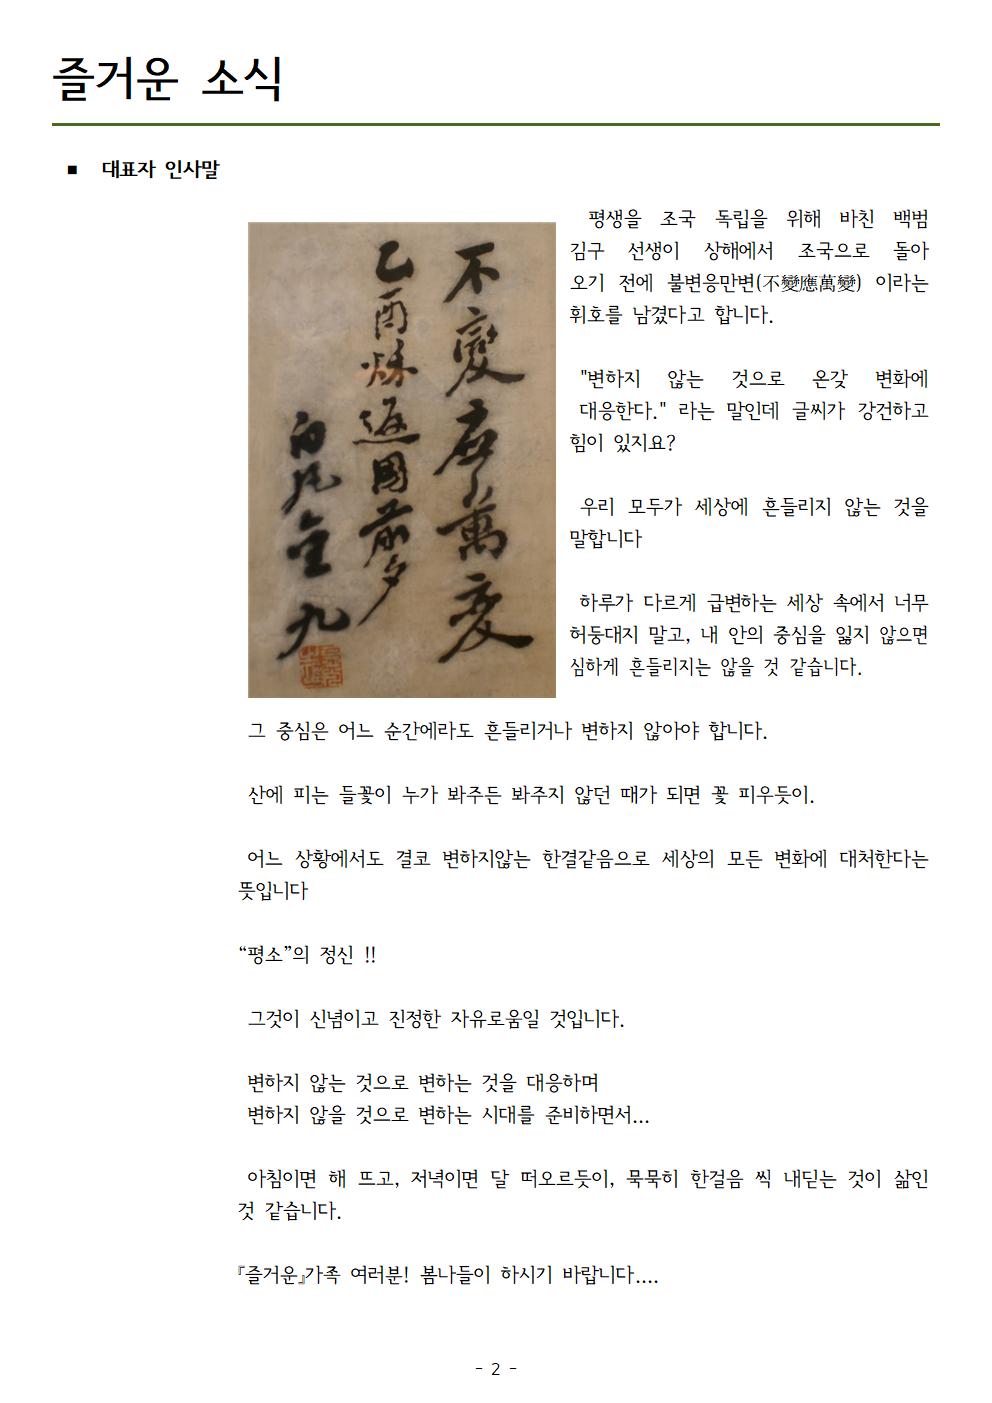 즐거운 소식
■ 대표자 인사말
不變應萬變
乙酉秋返國前夕
白凡金九
평생을 조국 독립을 위해 바친 백범
김구 선생이 상해에서 조국으로 돌아
오기 전에 불변응만변(不變應萬變) 이라는
휘호를 남겼다고 합니다.
"변하지 않는 것으로 온갖 변화에
대응한다." 라는 말인데 글씨가 강건하고
힘이 있지요?
우리 모두가 세상에 흔들리지 않는 것을
말합니다
하루가 다르게 급변하는 세상 속에서 너무
허둥대지 말고, 내 안의 중심을 잃지 않으면
심하게 흔들리지는 않을 것 같습니다.
그 중심은 어느 순간에라도 흔들리거나 변하지 않아야 합니다.
산에 피는 들꽃이 누가 봐주든 봐주지 않던 때가 되면 꽃 피우듯이.
어느 상황에서도 결코 변하지않는 한결같음으로 세상의 모든 변화에 대처한다는
뜻입니다
“평소”의 정신 !!
그것이 신념이고 진정한 자유로움일 것입니다.
변하지 않는 것으로 변하는 것을 대응하며
변하지 않을 것으로 변하는 시대를 준비하면서...
아침이면 해 뜨고, 저녁이면 달 떠오르듯이, 묵묵히 한걸음 씩 내딛는 것이 삶인
것 같습니다.
『즐거운』가족 여러분! 봄나들이 하시기 바랍니다....
- 2 -